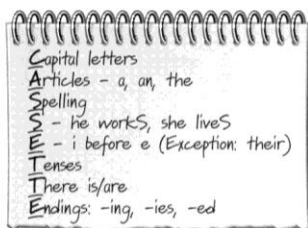 Capital letters
Articles - a, an, the
Spelling
S - he workS, she liveS
E - i before e (Exception: their)
Tenses
There is/are
Endings: -ing, -ies, -ed